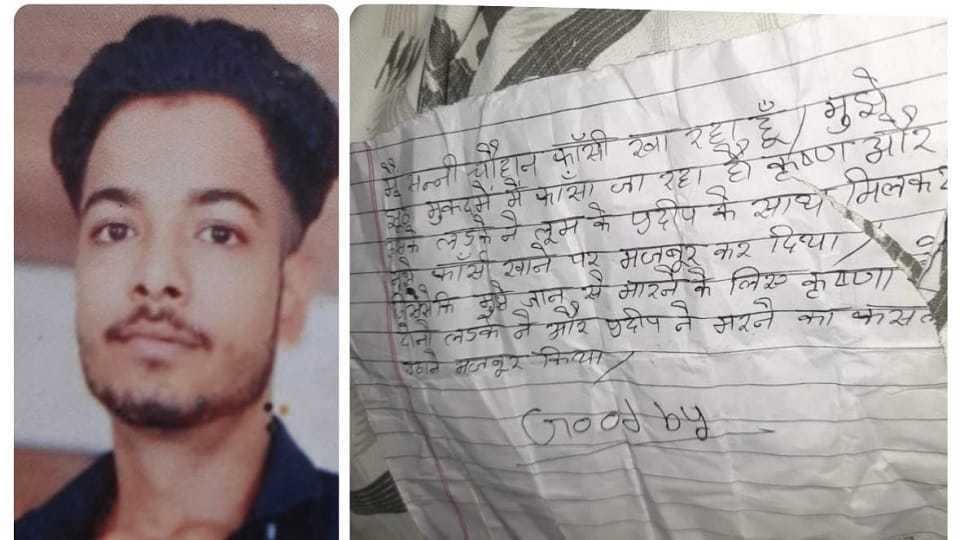 मैं सन्नी चौहान फाँसी खा रहा हूँ / मुझे
झूठे मुकदमें मैं फाँसा जा रहा है कृष्ण और
उसके लडके ने लूम के प्रदीप के साथ मिलकर
मुझे फाँसी खाने पर मजबूर कर दिया /
जिससेकि मुझे जान से मारने के लिए कृष्णा
दोनो लडके ने और प्रदीप ने मरने का
मजबूर किया /
Good by